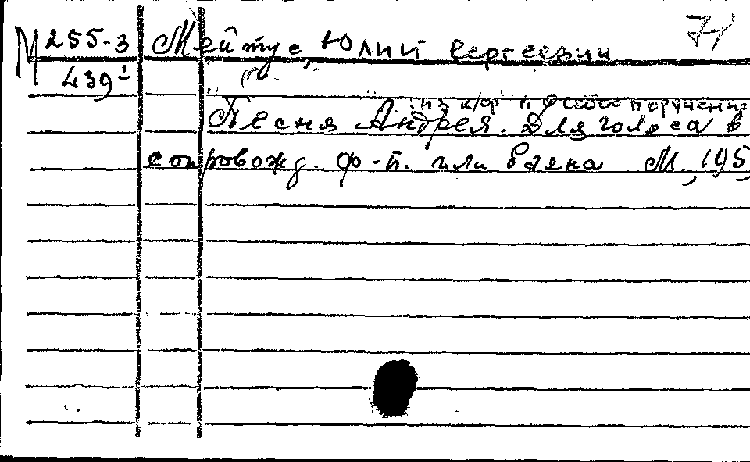 М 255-3 Мейтус, Юлий Сергеевич 71
439¹
из к/ф "Особое поручение
"Песня Андрея. Для голоса в
сопровожд. ф-п. или баяна М., 195